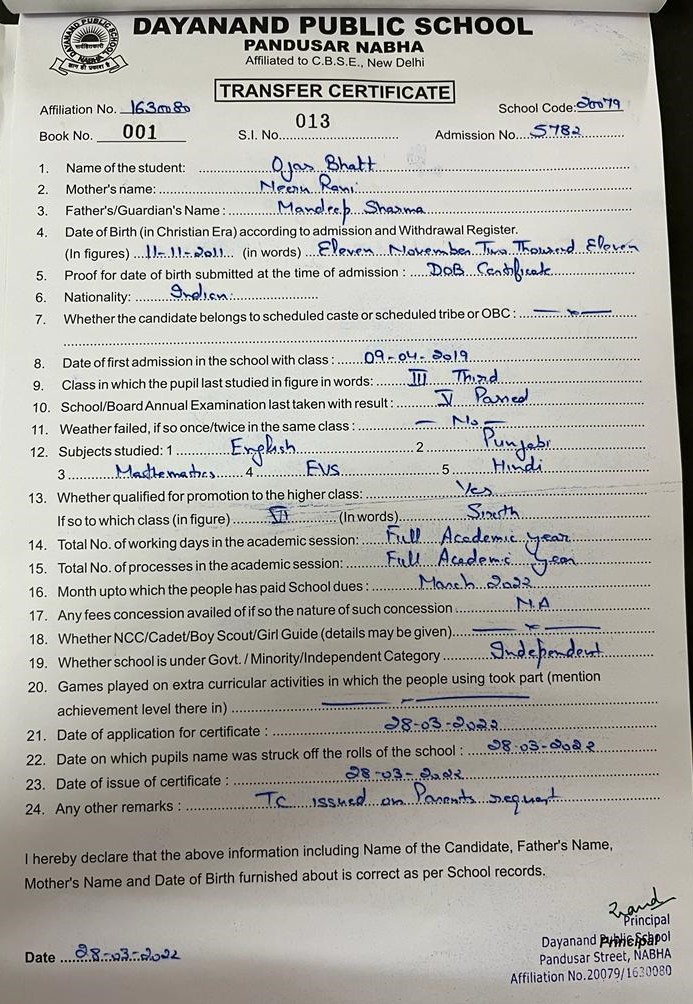 DAYANAND PUBLIC SCHOOL
PANDUSAR NABHA
Affiliated to C.B.S.E., New Delhi
DAYANAND PUBLIC SCHOOL
NABHA
TRANSFER CERTIFICATE
Affiliation No. 1630080 School Code: 20079
Book No. 001 S.I. No. 013 Admission No. 5782
1. Name of the student: Ojas Bhatt
2. Mother's name: Neeru Rani
3. Father's/Guardian's Name: Mandeep Sharma
4. Date of Birth (in Christian Era) according to admission and Withdrawal Register.
(In figures) 11-11-2011 (in words) Eleven November Two Thousand Eleven
5. Proof for date of birth submitted at the time of admission : DOB Certificate
6. Nationality: Indian
7. Whether the candidate belongs to scheduled caste or scheduled tribe or OBC : — x —
8. Date of first admission in the school with class : 09-04-2019
9. Class in which the pupil last studied in figure in words: III Third
10. School/Board Annual Examination last taken with result : V Passed
11. Weather failed, if so once/twice in the same class : — No —
12. Subjects studied: 1 English 2 Punjabi
3 Mathematics 4 EVS 5. Hindi
13. Whether qualified for promotion to the higher class: Yes
If so to which class (in figure) VI (In words) Sixth
14. Total No. of working days in the academic session: Full Academic year
15. Total No. of processes in the academic session: Full Academic year
16. Month upto which the people has paid School dues : March 2022
17. Any fees concession availed of if so the nature of such concession N.A
18. Whether NCC/Cadet/Boy Scout/Girl Guide (details may be given) — x —
19. Whether school is under Govt. / Minority/Independent Category Independent
20. Games played on extra curricular activities in which the people using took part (mention
achievement level there in) — —
21. Date of application for certificate : 28-03-2022
22. Date on which pupils name was struck off the rolls of the school : 28-03-2022
23. Date of issue of certificate : 28-03-2022
24. Any other remarks : TC issued on Parents request
I hereby declare that the above information including Name of the Candidate, Father's Name,
Mother's Name and Date of Birth furnished about is correct as per School records.
Principal
Dayanand Public School
Principal
Pandusar Street, NABHA
Affiliation No.20079/1630080
Date 28-03-2022